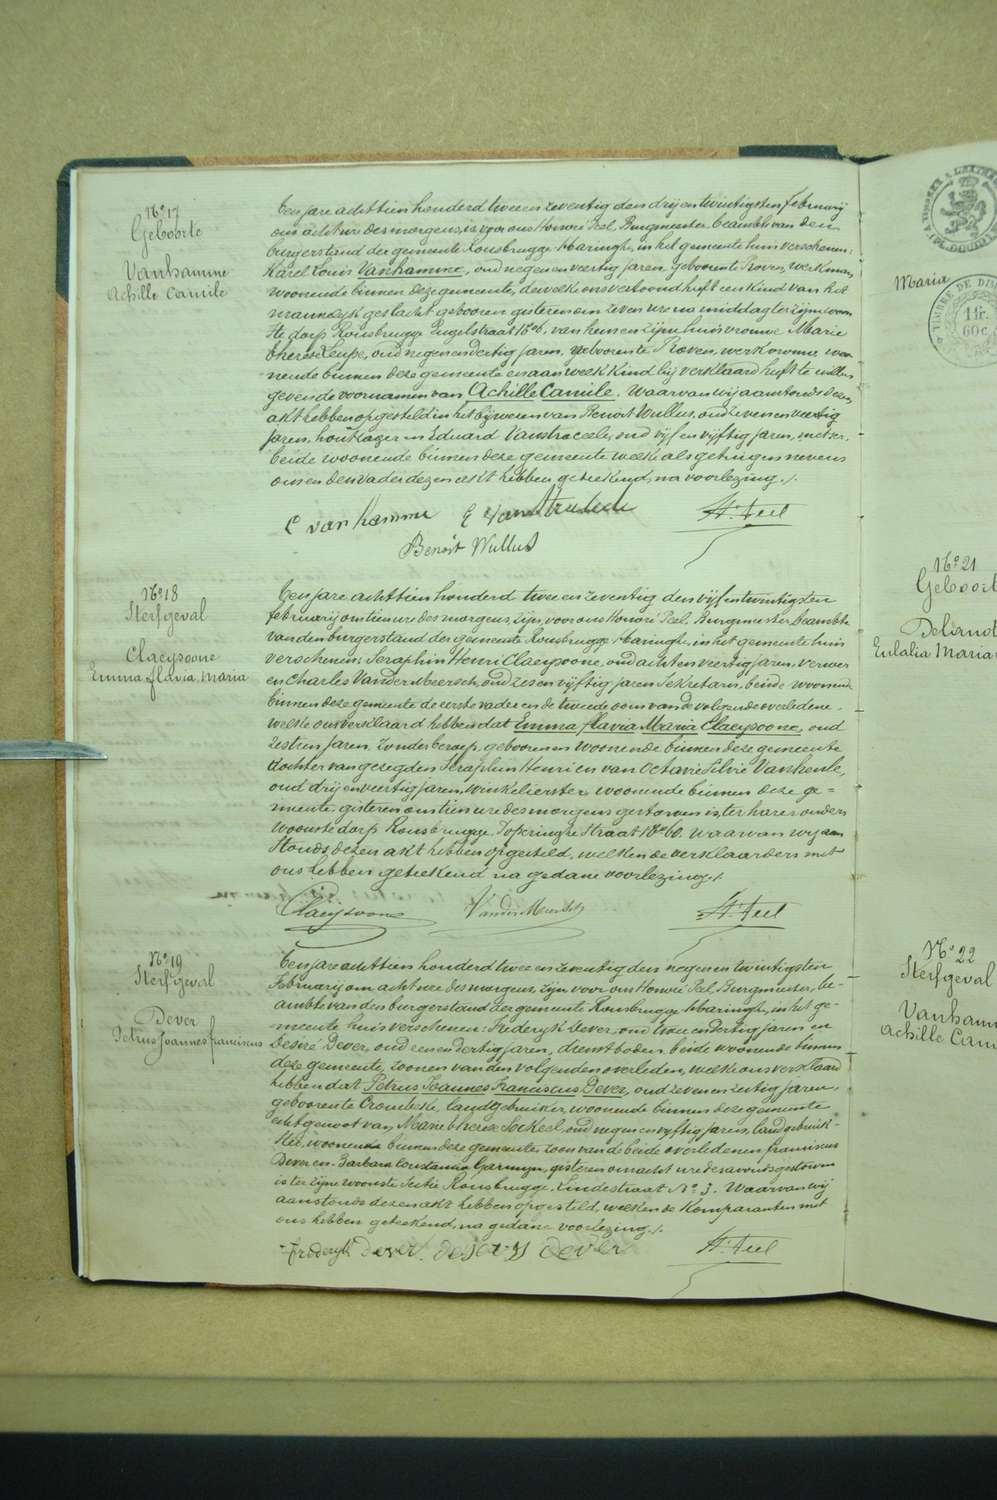 No 17
Geboorte
Vanhamme
Achille Camile
Ten jare achttien honderd twee en zeventig den drij en twintigsten February
om acht ure des morgens, is voor ons Honoré Peel, Burgmeester beambte van den
burgerstand der gemeente Rousbrugge-Haringhe, in het gemeente huis verschenen:
Karel Louis Vanhamme, oud negen en veertig jaren, geboren te Proven, werkman,
woonende binnen deze gemeente, dewelke ons vertoond heeft een kind van het
mannelyk geslacht geboren gisteren om zeven ure na middag ter zijner woon
ste dorp Rousbrugge van hem en zijne huisvrouwe Marie
Therese oud negen en dertig jaren, geboren te Proven, werkvrouw woo
nende binnen deze gemeente en aan welk kind hij verklaard heeft te willen
geven de voornamen van Achille Camile. Waarvan wij aanstonds dezen
akt hebben opgesteld in het bijwezen van Benoit Wullus, oud zeven en veertig
jaren, houtzager en Eduard Vanstraceele, oud vijf en vijftig jaren,
beide woonende binnen deze gemeente welke als getuigen nevens
ons en den vader dezen akt hebben geteekend, na voorlezing./.
C vanhamme E Vanstraceele H. Peel
Benoit Wullus
No 18
Sterfgeval
Claeysoone
Emma flavia Maria
Ten jare achttien honderd twee en zeventig den vijf en twintigsten
februarij om tien ure des morgens zijn, voor ons Honoré Peel, Burgmeester beambte
van den burgerstand der gemeente Rousbrugge-Haringhe, in het gemeente huis
verschenen: Seraphin Henri Claeysoone, oud acht en veertig jaren, verwer
en Charles Vander Meersch, oud zes en vijftig jaren Sekretaris, beide woonende
binnen deze gemeente de eerste vader en de tweede oom van de volgende overledene.
welke ons verklaard hebben dat Emma flavia Maria Claeysoone, oud
zestien jaren, zonder beroep, geboren en woonende binnen deze gemeente
dochter van gezegden Seraphin Henri en van Octavie Silvie Vanheule,
oud drij en veertig jaren, winkelierster woonende binnen deze ge=
meente, gisteren om tien ure des morgens gestorven is, ter harer ouders
woonste dorp Rousbrugge, Poperinghe Straat No 60. Waarvan wij aan
stonds dezen akt hebben opgesteld, welken de verklaarders met
ons hebben geteekend na gedane voorlezing./.
Claeysoone VanderMeersch H. Peel
No 19
Sterfgeval
Dever
Petrus Joannes franciscus
Ten jare achttien honderd twee en zeventig den negen en twintigsten
February om acht ure des morgens zijn voor ons Honoré Peel, Burgmeester, be-
ambte van den burgerstand der gemeente Rousbrugge Haringhe, in het ge-
meente huis verschenen: Frederyk Dever, oud twee en dertig jaren en
Desiré Dever, oud een en dertig jaren, dienstboden beide woonende binnen
deze gemeente, zoonen van den volgenden overleden, welke ons verklaard
hebben dat Petrus Joannes Franciscus Dever, oud zeven en zestig jaren,
geboren te Crombeke, landgebruiker, woonende binnen deze gemeente
echtgenoot van Marie Therese Sockeel, oud negen en vyftig jaren, landgebruik-
ster, woonende binnen deze gemeente, zoon van de beide overledenen franciscus
Dever en Barbara Constantia Garmyn, gisteren om acht ure des avonds gestorven
is ter zijne woonste Sectie Rousbrugge, Lindestraat No 3. Waarvan wij
aanstonds dezen akt hebben opgesteld, welken de komparanten met
ons hebben geteekend, na gedane voorlezing./.
frederyk dever. desiry dever H. Peel
Maria
TIMBRE DE DIM
1 fr.
60 c.
No 21
Geboort
Eulalia Maria
No 22
Sterfgeval
Vanhamm
Achille Cam